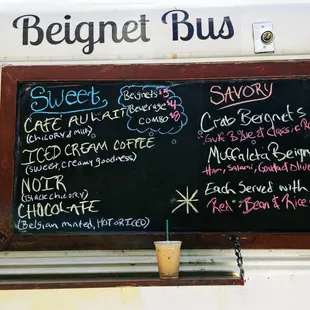 Beignet Bus
Sweet
Beignets $5
Beverage $4
COMBO $8
CAFÉ AU LAIT
(chicory & milk)
ICED CREAM COFFEE
(sweet, creamy goodness)
NOIR
(Black chicory)
CHOCOLATE
(Belgian minted, HOT OR ICED)
SAVORY
Crab Beignets
Blue & Classic
Muffaletta Beign
Ham, Salami, Gouda & Olive
Each Served with
Red Bean & Rice